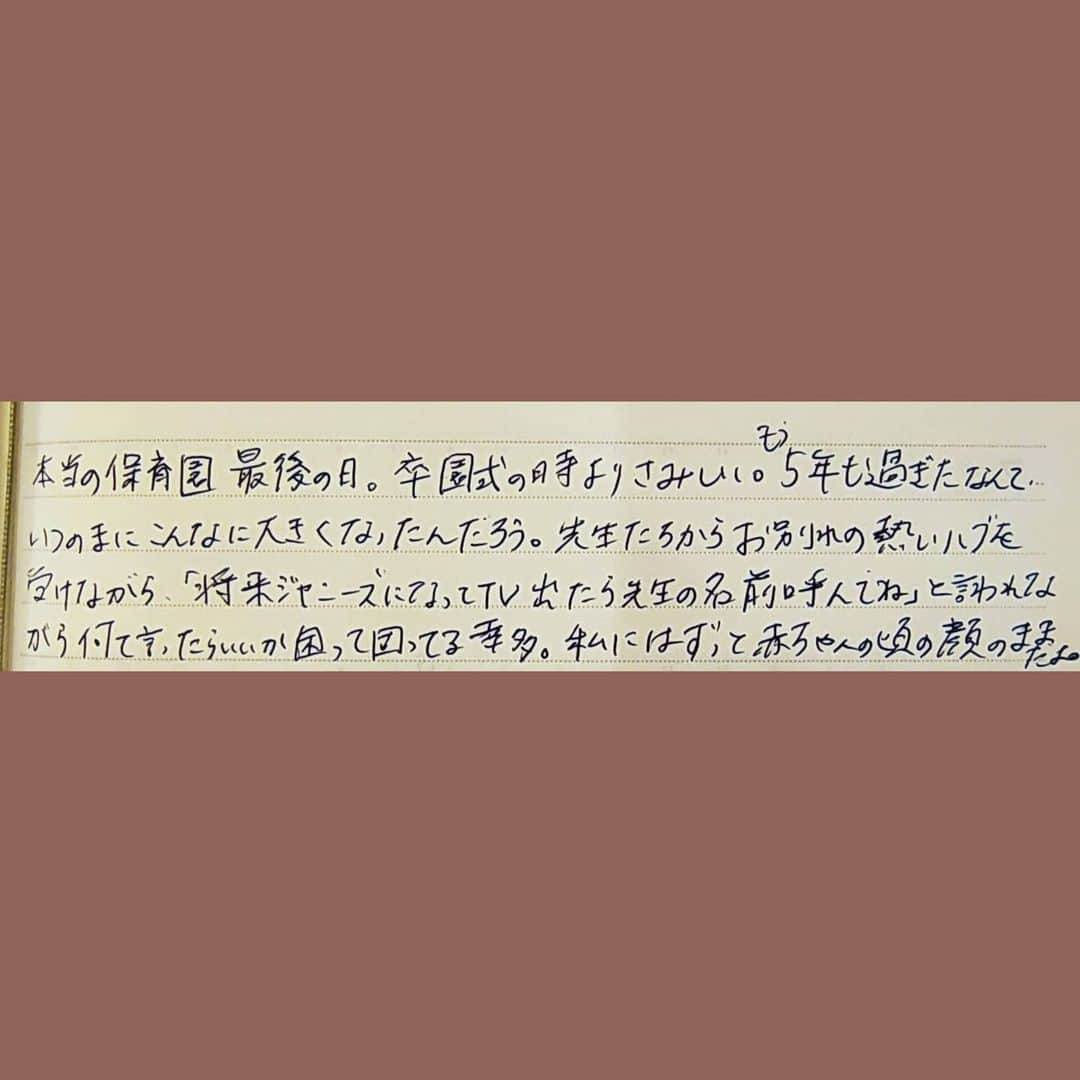 本当の保育園 最後の日。卒園式の時よりさみしい。もう5年も過ぎたなんて…
いつのまにこんなに大きくなったんだろう。先生たちからお別れの熱いハグを
受けながら、「将来ジャニーズになってTV出たら先生の名前呼んでね」と言われな
がら何て言ったらいいか困って困ってる幸多。私にはずっと赤ちゃんの頃の顔のまま
だよ。